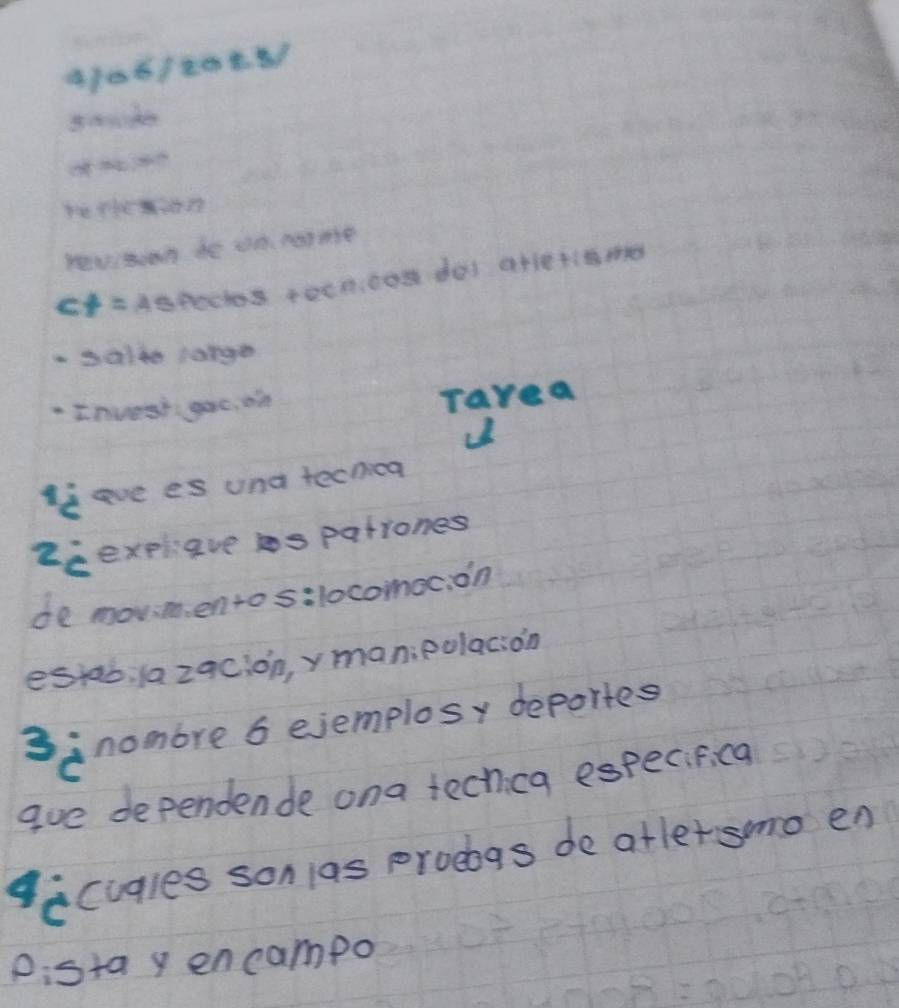 4/06/2023/
saludo
oracion
reflexion
revision de uniforme
ct = Aspectos tecnicos del atletismo
- salto largo
- Investigación
Tarea
1¿ que es una tecnica
2¿ explique los patrones
de movimientos: locomoción
estabilazación, y manipulación
3¿ nombre 6 ejemplos y deportes
que dependen de una tecnica especifica
4¿ cuales son las pruebas de atletismo en
pista y en campo